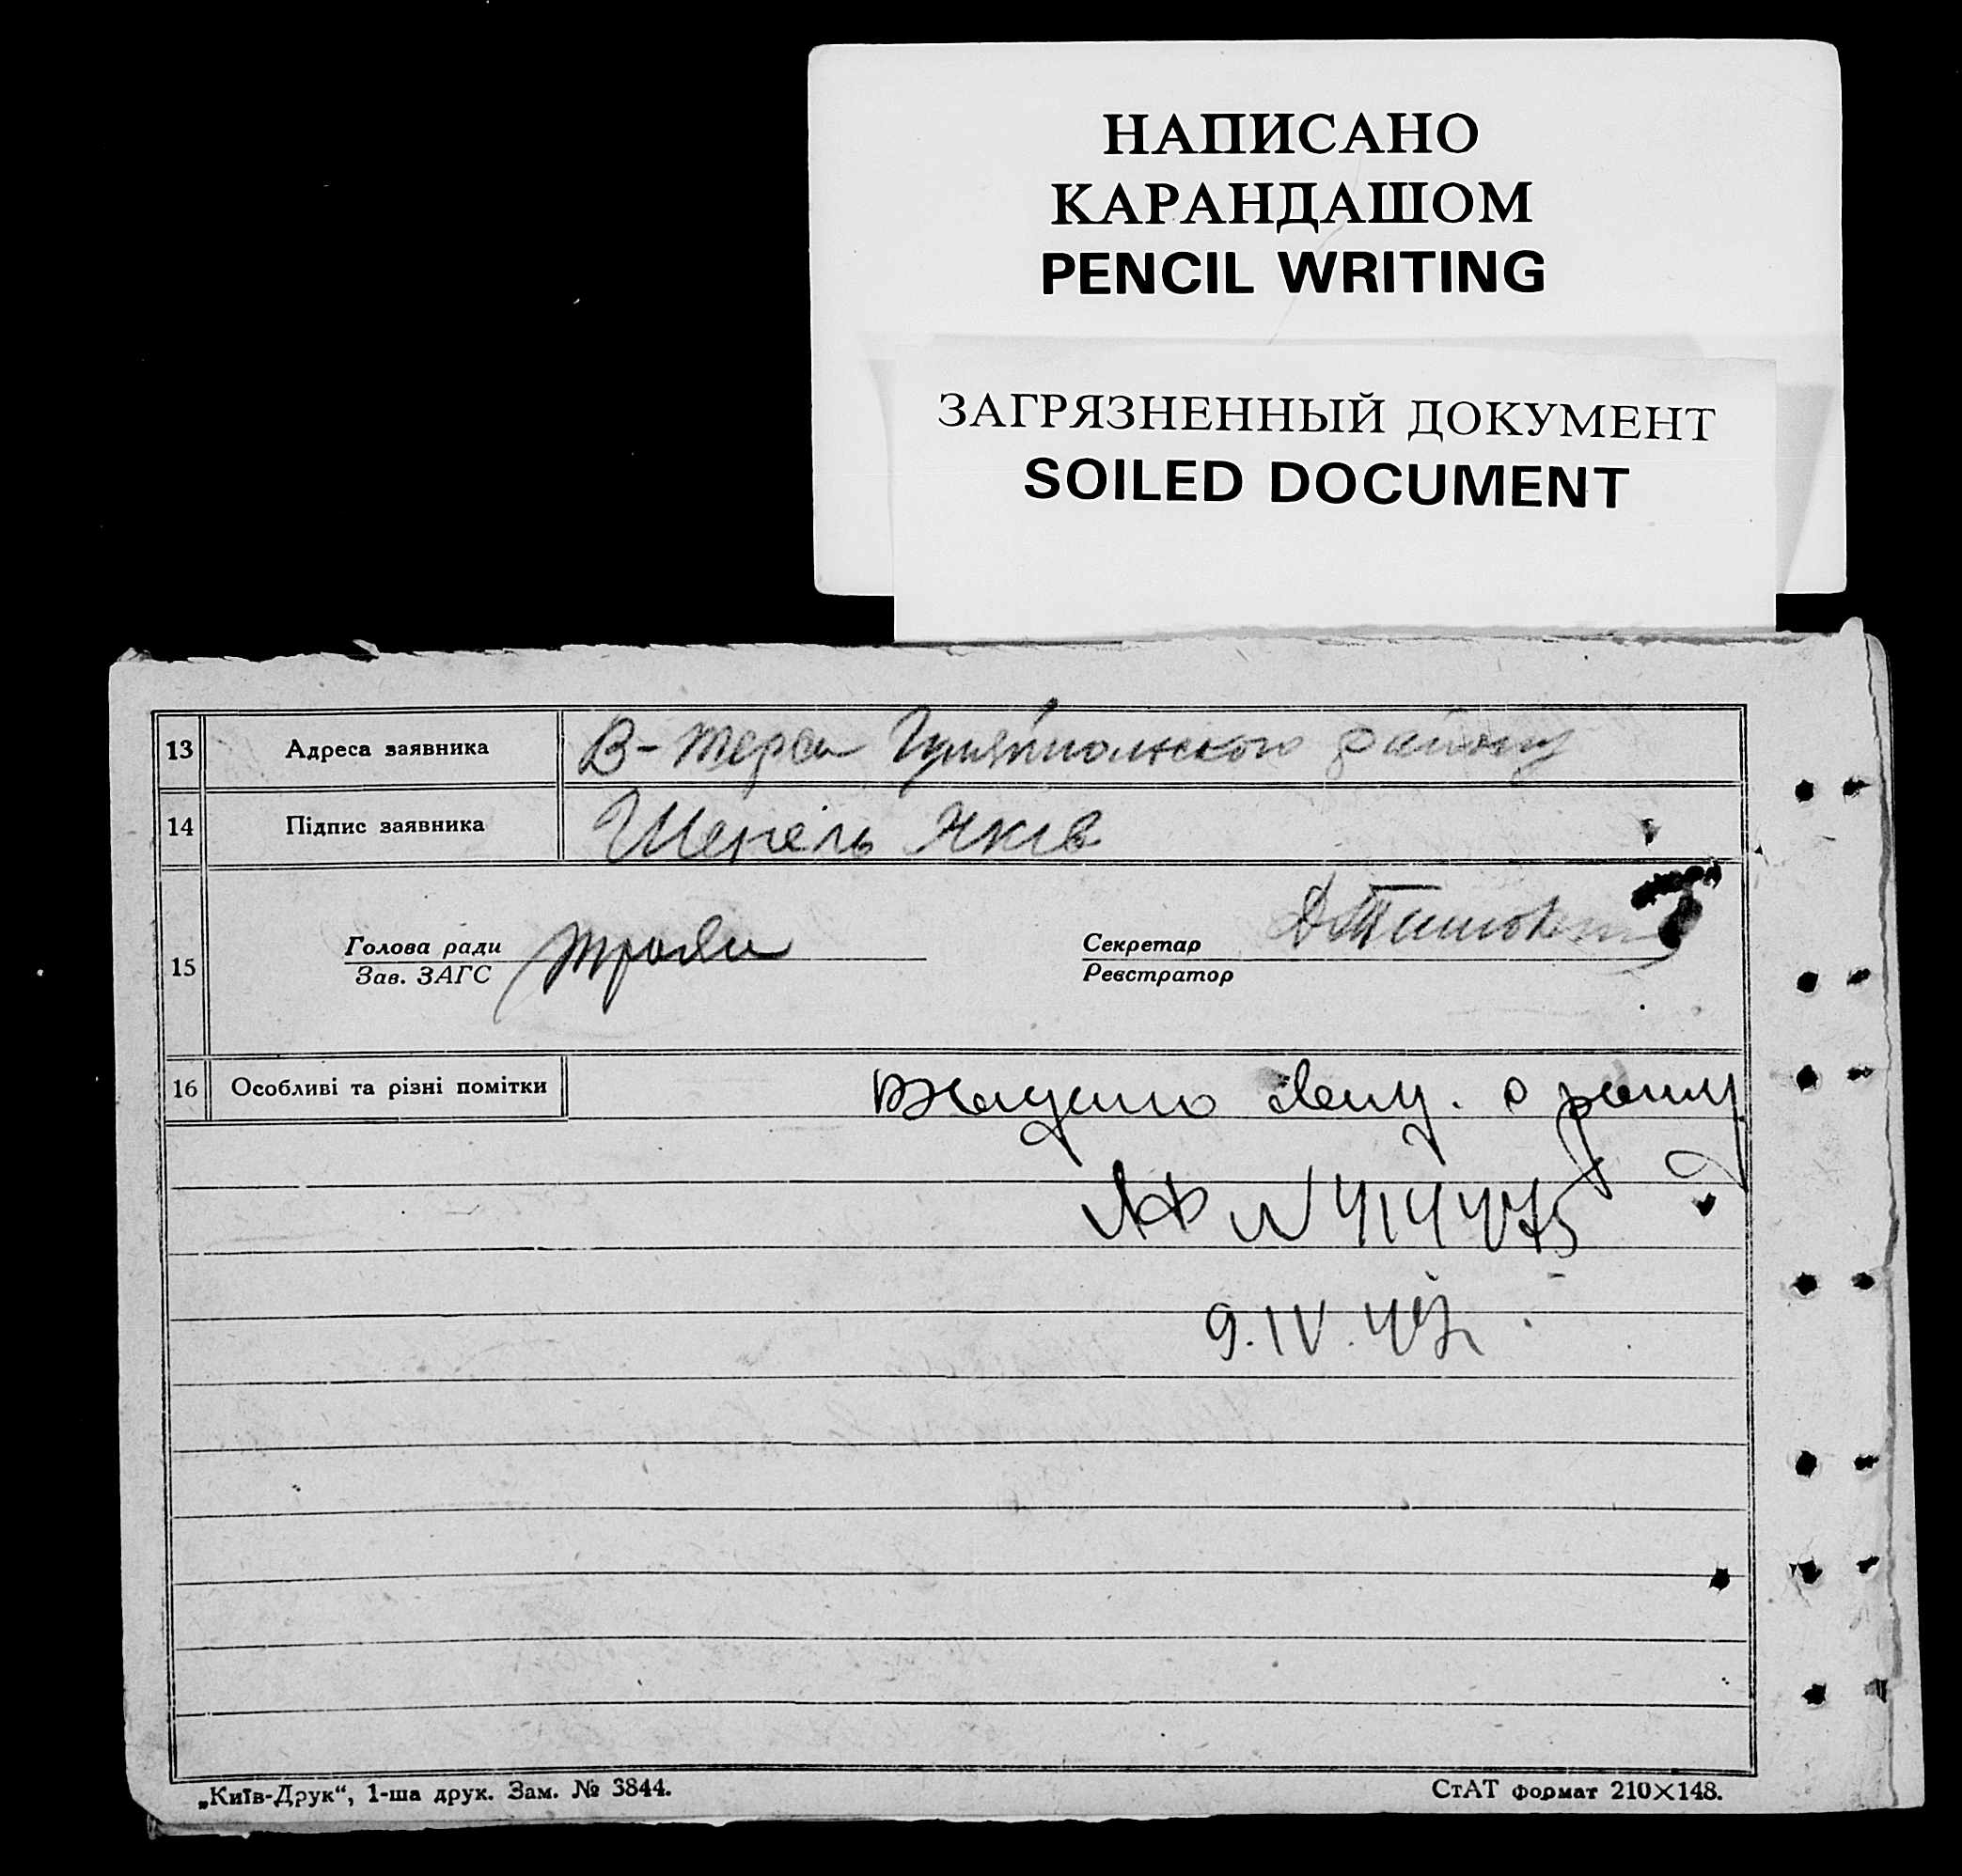 НАПИСАНО
КАРАНДАШОМ
PENCIL WRITING
ЗАГРЯЗНЕННЫЙ ДОКУМЕНТ
SOILED DOCUMENT
13 Адреса заявника В-Терса Гуляйпольского району
14 Підпис заявника Шепель Яків
Голова ради Троян Секретар
15 Зав. ЗАГС Реєстратор
16 Особливі та різні помітки
№ 414475
9.IV.47
„Київ-Друк“, 1-ша друк. Зам. № 3844. СтАТ формат 210×148.